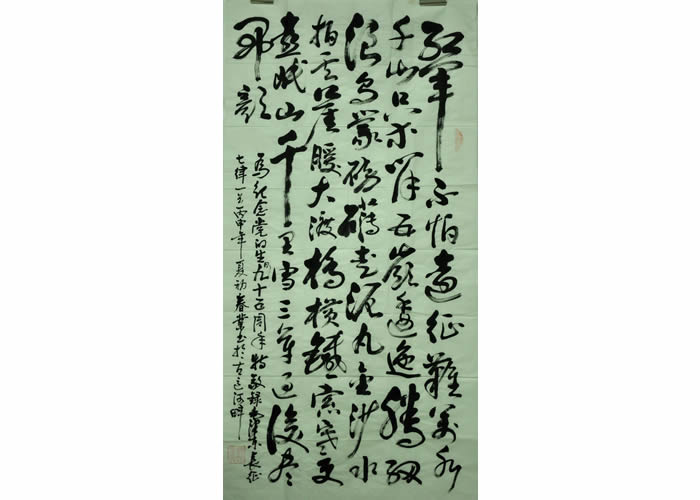 红军不怕遠征難萬水
千山只等闲五嶺逶迤腾细
浪乌蒙磅礴走泥丸金沙水
拍云崖暖大渡橋横鐵索寒更
喜岷山千里雪三军过後尽
开颜
为纪念党的生日九十五周年特敬録毛泽东長征
七律一首丙申年夏初春業书於古运河畔